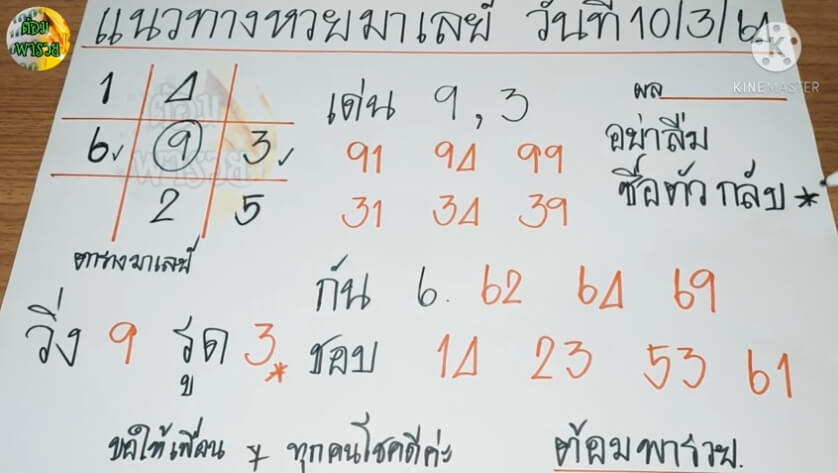 ต้อม
พารวย
แนวทางหวยมาเลย์ วันที่ 10/3/64
KINEMASTER
1 4
6 9 3
2 5
ตารางมาเลย์
เด่น 9, 3
91 94 99
31 34 39
ผล
อย่าลืม
ซื้อตัวกลับ *
กัน 6. 62 64 69
วิ่ง 9 รูด 3 *
ชอบ 14 23 53 61
ขอให้เพื่อน ๆ ทุกคนโชคดีค่ะ
ต้อมพารวย.